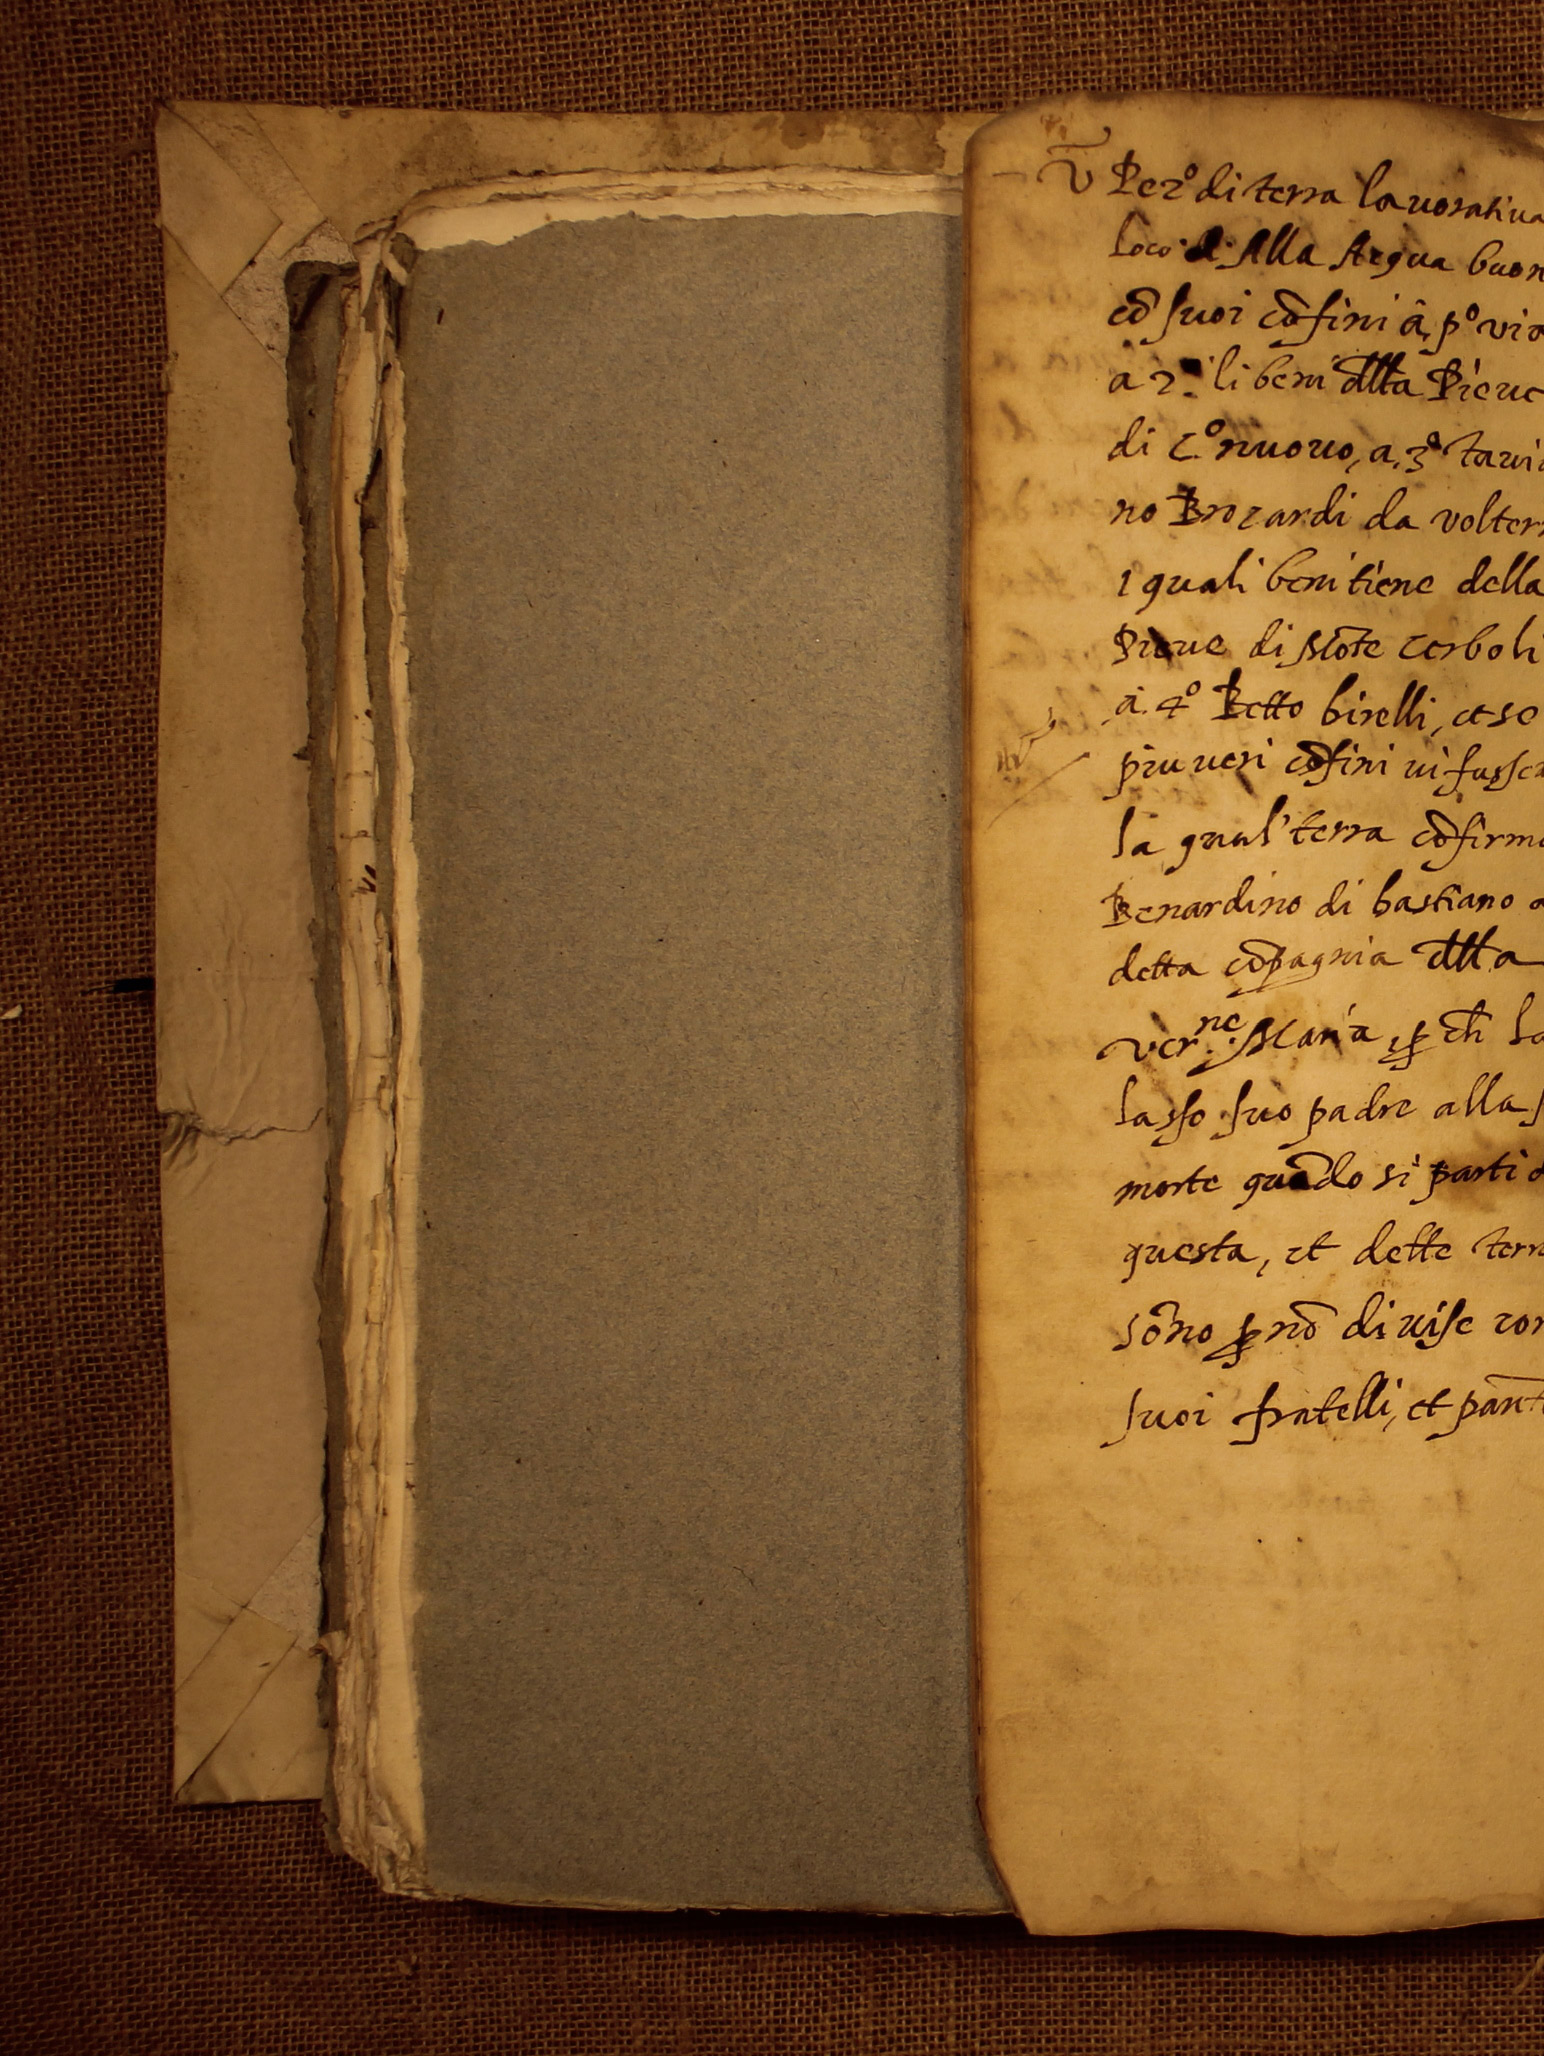 Ũ Pezº di terra lauoratiua
loco d Alla Acqua buon
cõ suoi cõfini â pº via
a 2º li beni dlla Pieue
di C.º nuouo, a 3º taui
no Brocardi da volterr
i quali beni tiene della
Pieue di Mõte cerboli
a. 4º Betto birelli, et se
piu ueri cõfini ui fusser
la qual' terra cõfirma
Benardino di bastiano a
detta cõpagnia dlla
Ver.ne Maria ꝑ ch̃ la
lasso suo padre alla s
morte quãdo si parti d
questa, et dette terr
sono ꝑ nõ diuise con
suoi fratelli, et par̃t